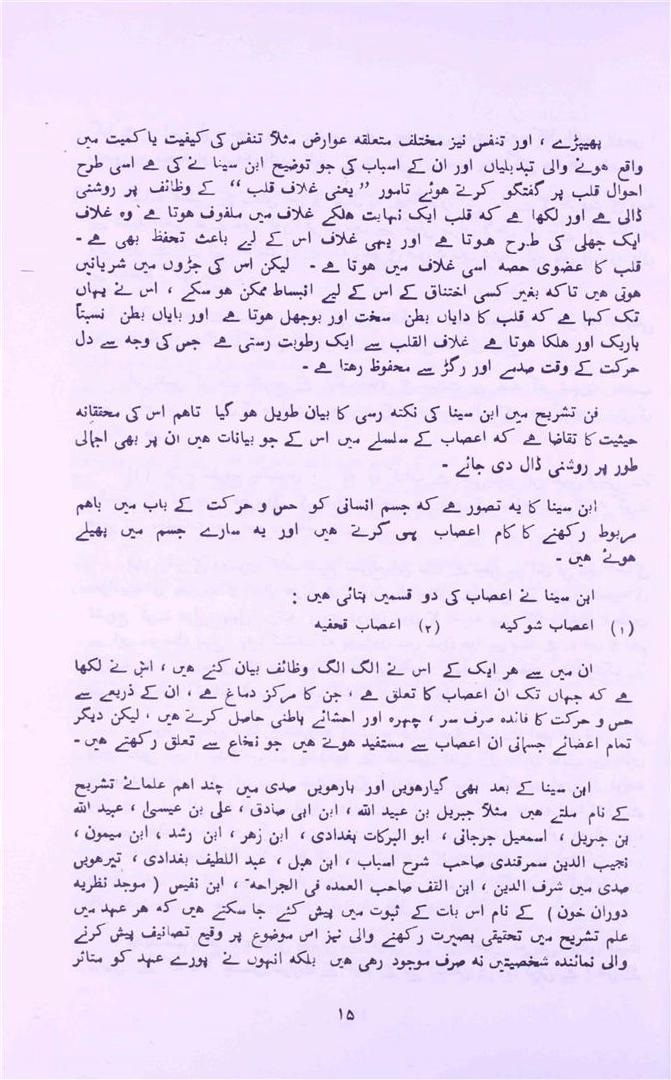 پھیپڑے ، اور تنفس نیز مختلف متعلقہ عوارض مثلاً تنفس کی کیفیت یا کمیت میں
واقع ہونے والی تبدیلیاں اور ان کے اسباب کی جو توضیح ابن سینا نے کی ہے اسی طرح
احوال قلب پر گفتگو کرتے ہوئے تامور ”یعنی غلاف قلب“ کے وظائف پر روشنی
ڈالی ہے اور لکھا ہے کہ قلب ایک نہایت ہلکے غلاف میں ملفوف ہوتا ہے وہ غلاف
ایک جھلی کی طرح ہوتا ہے اور یہی غلاف اس کے لیے باعث تحفظ بھی ہے ۔
قلب کا عضوی حصہ اسی غلاف میں ہوتا ہے ۔ لیکن اس کی جڑوں میں شریانیں
ہوتی ہیں تاکہ بغیر کسی اختناق کے اس کے لیے انبساط ممکن ہو سکے ، اس نے یہاں
تک کہا ہے کہ قلب کا دایاں بطن سخت اور بوجھل ہوتا ہے اور بایاں بطن نسبتاً
باریک اور ہلکا ہوتا ہے غلاف القلب سے ایک رطوبت رستی ہے جس کی وجہ سے دل
حرکت کے وقت صدمے اور رگڑ سے محفوظ رہتا ہے ۔
فن تشریح میں ابن سینا کی نکتہ رسی کا بیان طویل ہو گیا تاہم اس کی محققانہ
حیثیت کا تقاضا ہے کہ اعصاب کے سلسلے میں اس کے جو بیانات ہیں ان پر بھی اجمالی
طور پر روشنی ڈال دی جائے ۔
ابن سینا کا یہ تصور ہے کہ جسم انسانی کو حس و حرکت کے باب میں باہم
مربوط رکھنے کا کام اعصاب ہی کرتے ہیں اور یہ سارے جسم میں پھیلے
ہوئے ہیں ۔
ابن سینا نے اعصاب کی دو قسمیں بتائی ہیں :
(۱) اعصاب شوکیہ (۲) اعصاب قحفیہ
ان میں سے ہر ایک کے اس نے الگ الگ وظائف بیان کئے ہیں ، اس نے لکھا
ہے کہ جہاں تک ان اعصاب کا تعلق ہے ، جن کا مرکز دماغ ہے ، ان کے ذریعے سے
حس و حرکت کا فائدہ صرف سر ، چہرہ اور احشائے باطنی حاصل کرتے ہیں ، لیکن دیگر
تمام اعضائے جسمانی ان اعصاب سے مستفید ہوتے ہیں جو نخاع سے تعلق رکھتے ہیں ۔
ابن سینا کے بعد بھی گیارھویں اور بارھویں صدی میں چند اہم علمائے تشریح
کے نام ملتے ہیں مثلاً جبریل بن عبید اللہ ، ابن ابی صادق ، علی بن عیسیٰ ، عبید اللہ
بن جبریل ، اسمعیل جرجانی ، ابو البرکات بغدادی ، ابن زھر ، ابن رشد ، ابن میمون ،
نجیب الدین سمرقندی صاحب شرح اسباب ، ابن ھبل ، عبد اللطیف بغدادی ، تیرھویں
صدی میں شرف الدین ، ابن القف صاحب العمدہ فی الجراحہ ، ابن نفیس (موجد نظریہ
دوران خون) کے نام اس بات کے ثبوت میں پیش کئے جا سکتے ہیں کہ ہر عہد میں
علم تشریح میں تحقیقی بصیرت رکھنے والی نیز اس موضوع پر وقیع تصانیف پیش کرنے
والی نمائندہ شخصیتیں نہ صرف موجود رہی ہیں بلکہ انہوں نے پورے عہد کو متاثر
۱۵